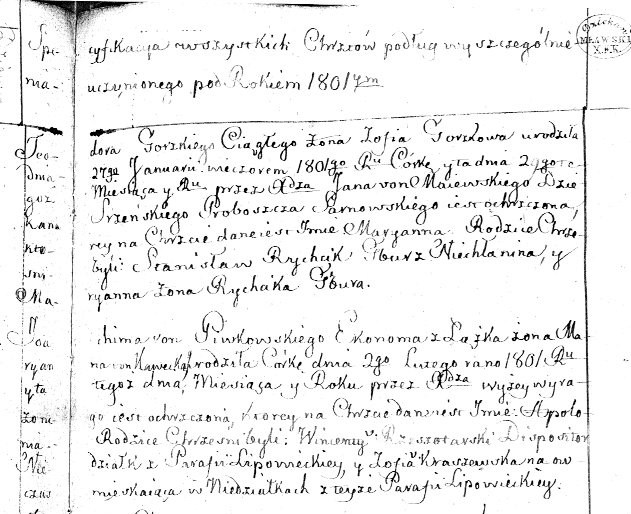 Spe- cyfikacya wszystkich Chrztów podług wyszczególnie
nia- uczynionego pod Rokiem 1801ym
Dziekan
MŁAWSKI
X.K.
Teo- dora Gorzkiego Ciągłego żona Zofia Gorzkowa urodziła
27go Januarii wieczorem 1801go Ru Córkę y ta dnia 29go te-
goż Miesiąca y Ru przez Xdza Jana von Maiewskiego Dzie
Kana Srzeńskiego Proboszcza Sarnowskiego iest ochrzczona,
kto- rey na Chrzcie dane iest Imie Maryanna. Rodzice Chrze-
śni byli: Stanisław Rychcik Gbur z Niechłanina, y
Ma- ryanna żona Rychcika Gbura.
Joa chima von Piwkowskiego Ekonoma z Łążka żona Ma
ryan na von rodziła Córkę dnia 2go Lutego rano 1801 Ru
y ta tegoż dnia, Miesiąca y Roku przez Xdza wyżey wyra-
żone go iest ochrzczona, ktorey na Chrzcie dane iest Imie: Apolo
nia- Rodzice Chrzesni byli: Wincenty Rzeszotarski Dispositor
Nie działk z Parafii Lipowieckiey, y Zofia Kraszewska na ow
czas mieszkaiąca w Niedziałkach z teyże Parafii Lipowieckiey.